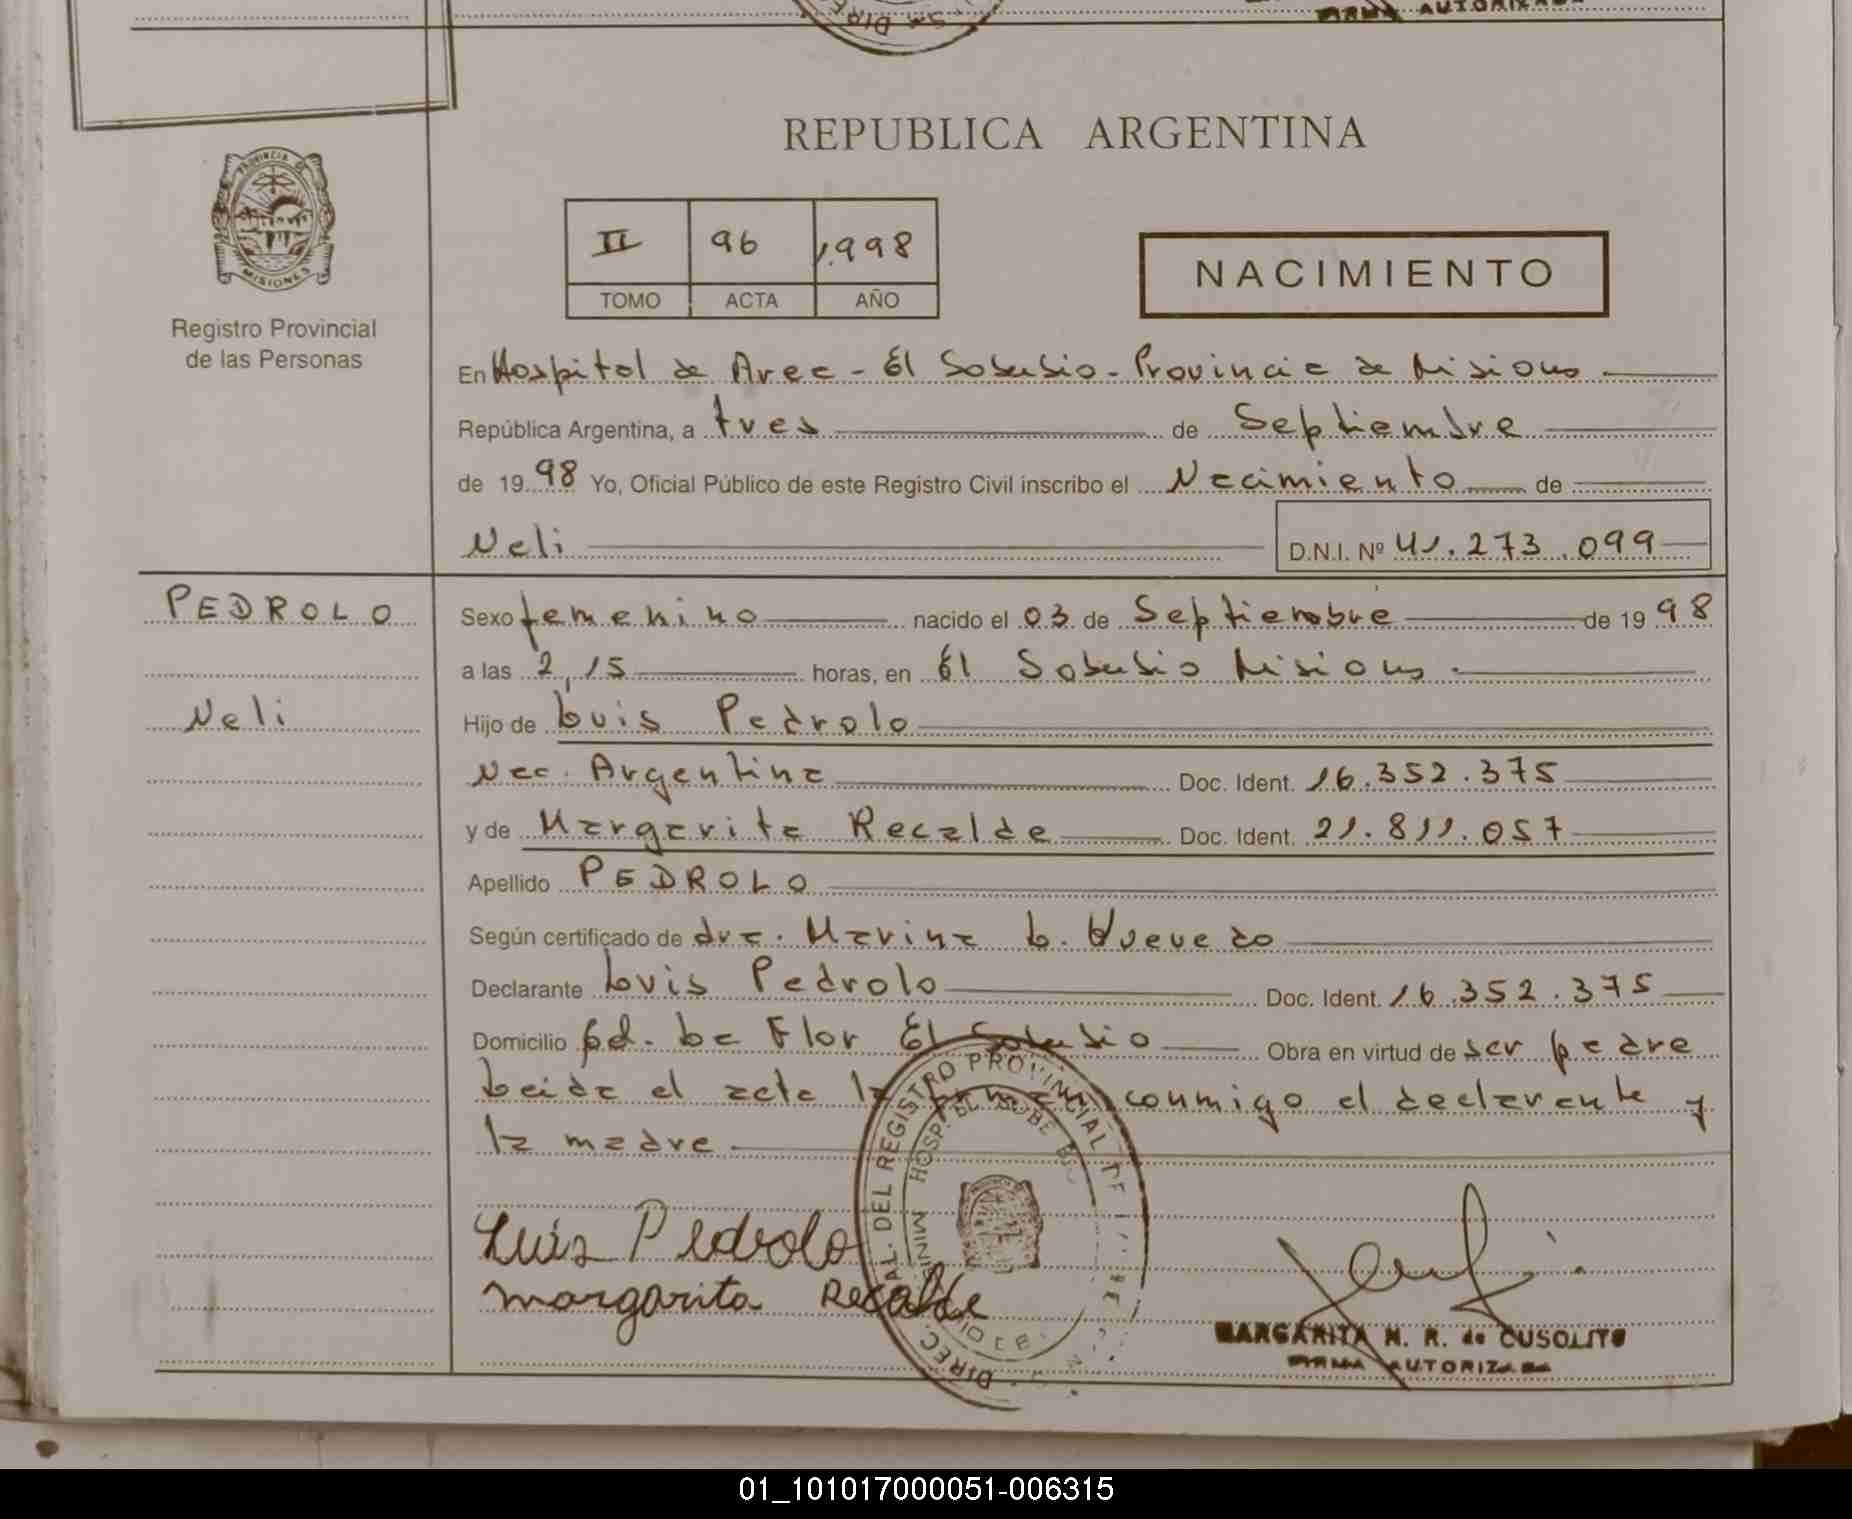 FIRMA AUTORIZADA
REPUBLICA ARGENTINA
PROVINCIA DE MISIONES
Registro Provincial
de las Personas
II 96 1.998
TOMO ACTA AÑO
NACIMIENTO
En Hospital de Area - El Soberbio - Provincia de Misiones
República Argentina, a tres de Septiembre
de 19 98 Yo, Oficial Público de este Registro Civil inscribo el Nacimiento de
Neli D.N.I. Nº 41.273.099
PEDROLO
Neli
Sexo femenino nacido el 03 de Septiembre de 19 98
a las 2,15 horas, en El Soberbio Misiones.
Hijo de Luis Pedrolo
Nac. Argentina Doc. Ident. 16.352.375
y de Margarita Recalde Doc. Ident. 21.811.057
Apellido PEDROLO
Según certificado de dra. Marina L.
Declarante Luis Pedrolo Doc. Ident. 16.352.375
Domicilio La Flor El Soberbio Obra en virtud de ser padre
Leida el acta la firman conmigo el declarante y
la madre
Luis Pedrolo
margarita Recalde
DIREC. GRAL. DEL REGISTRO PROVINCIAL DE
HOSP. EL SOBERBIO
MARGARITA N. R. de CUSOLITO
FIRMA AUTORIZADA
01_101017000051-006315